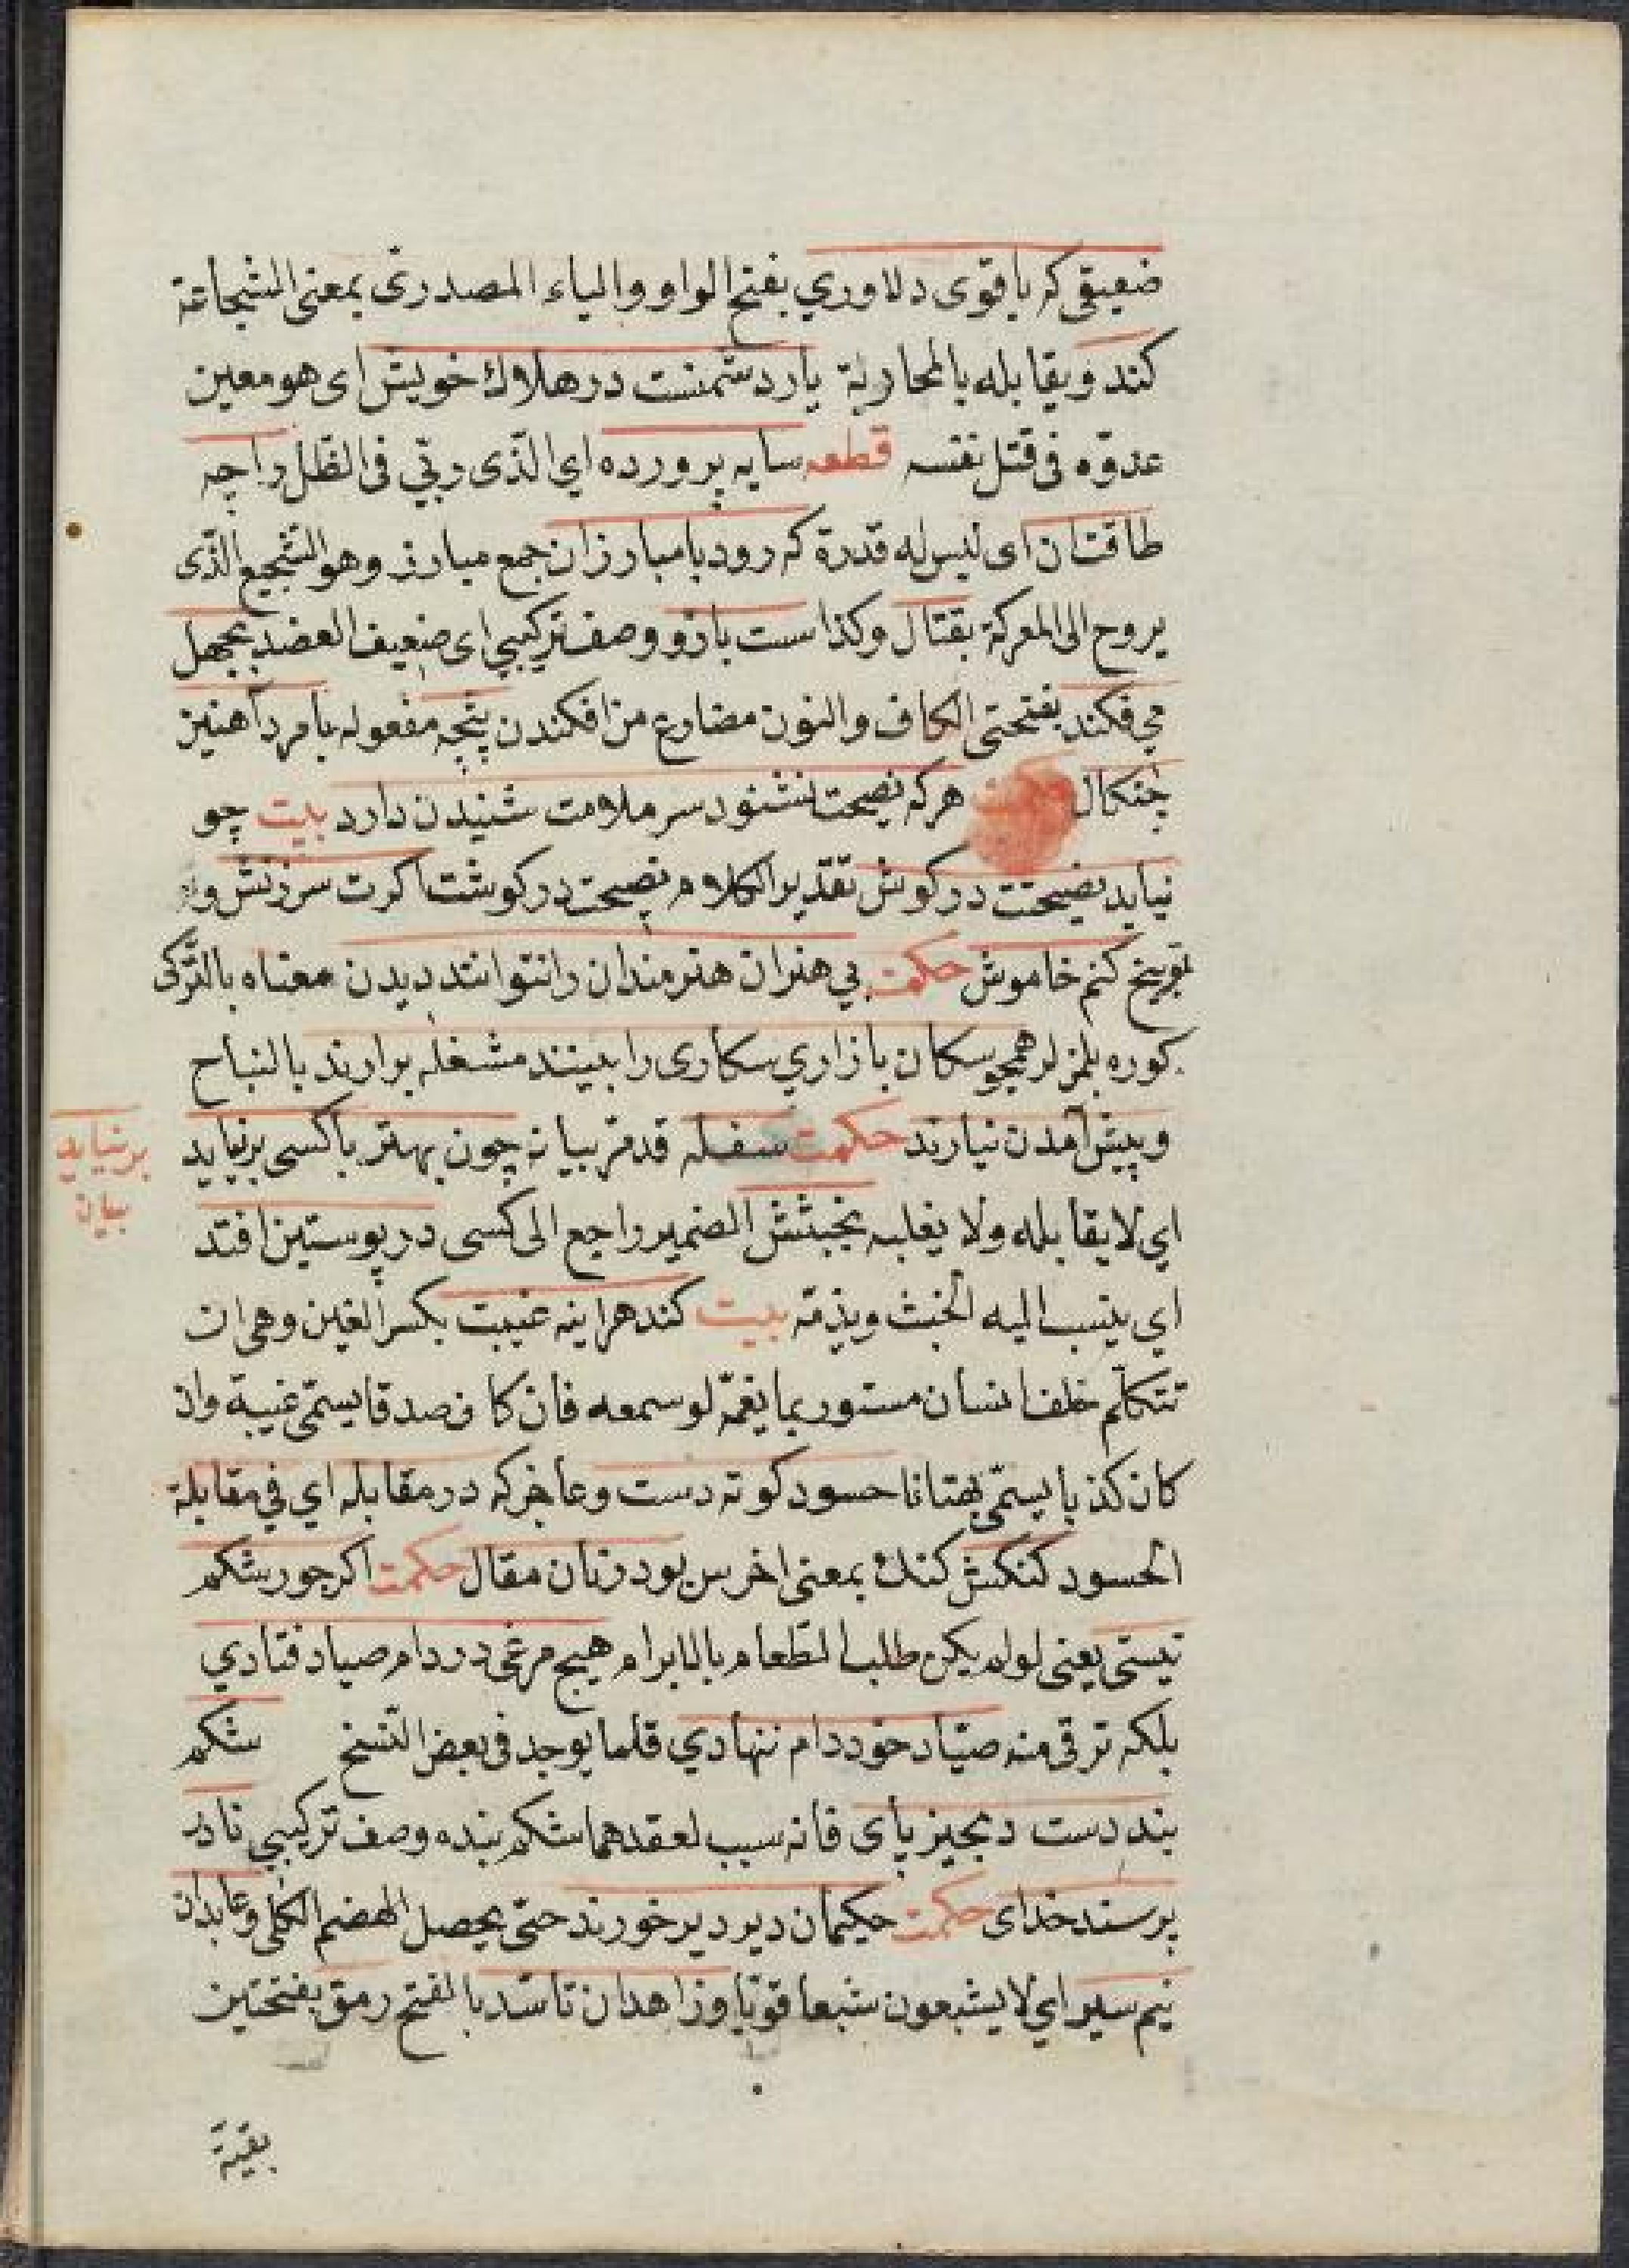 ضعيفى كه با قوى دلاوري بفتح الواو والياء المصدرى بمعنى الشجاعة
كند ويقابله بالمحاربة يار دشمنست در هلاك خويش اى هو معين
عدوّه فى قتل نفسه قطعه سايه پرورده اي الذى ربّي فى الظل را چه
طاقت آن اى ليس له قدرة كه رود با مبارزان جمع مبارز وهو الشجيع الذى
يروح الى المعركة بقتال وكذا سست بازو وصف تركيبي اى ضعيف العضد بجهل
مي فكند بفتحتى الكاف والنون مضارع من افكندن پنجه مفعوله با مرد آهنين
چنكال هركه نصيحت نشنود سر ملامت شنيدن دارد بيت چو
نيايد نصيحتت در كوش تقدير الكلام نصيحت در كوشت اكرت سرزنش و
توبيخ كنم خاموش حكمت بي هنران هنرمندان را نتوانند ديدن معناه بالتركى
كوره بلمزلر همچو سكان بازاري سكارى را بينند مشغله برارند بالنباح
وپيش آمدن نيارند حكمت سفله قد مرّ بيانه چون بهنر با كسى برنيايد
اي لا يقابله ولا يغلبه بخبثش الضمير راجع الى كسى در پوستين افتد
اي ينسب اليه الخبث ويذمّه بيت كند هراينه غيبت بكسر الغين وهى ان
تتكلّم خلف انسان مستور بما يغمّه لو سمعه فان كان صدقا يسمّى غيبة وان
كان كذبا يسمّى بهتانا حسود كوته دست وعاجز كه در مقابله اي في مقابلة
الحسود كنكش كنك بمعنى اخرس بود زبان مقال حكمت اكر جور شكم
نيستى يعنى لو لم يكن طلب الطعام بالابرام هيچ مرغى در دام صياد فتادي
بلكه ترقى منه صيّاد خود دام ننهادي قلما يوجد فى بعض النسخ شكم
بند دست وبجيز پاى فانه سبب لعقدهما شكم بنده وصف تركيبي نادر
پرستد خداى حكمت حكيمان دير دير خورند حتى يحصل الهضم الكلى وعابدان
نيم سير اي لا يشبعون شبعا قويّا وزاهدان تا سد بالفتح رمق بفتحتين
بقية
برنيايد
بيان